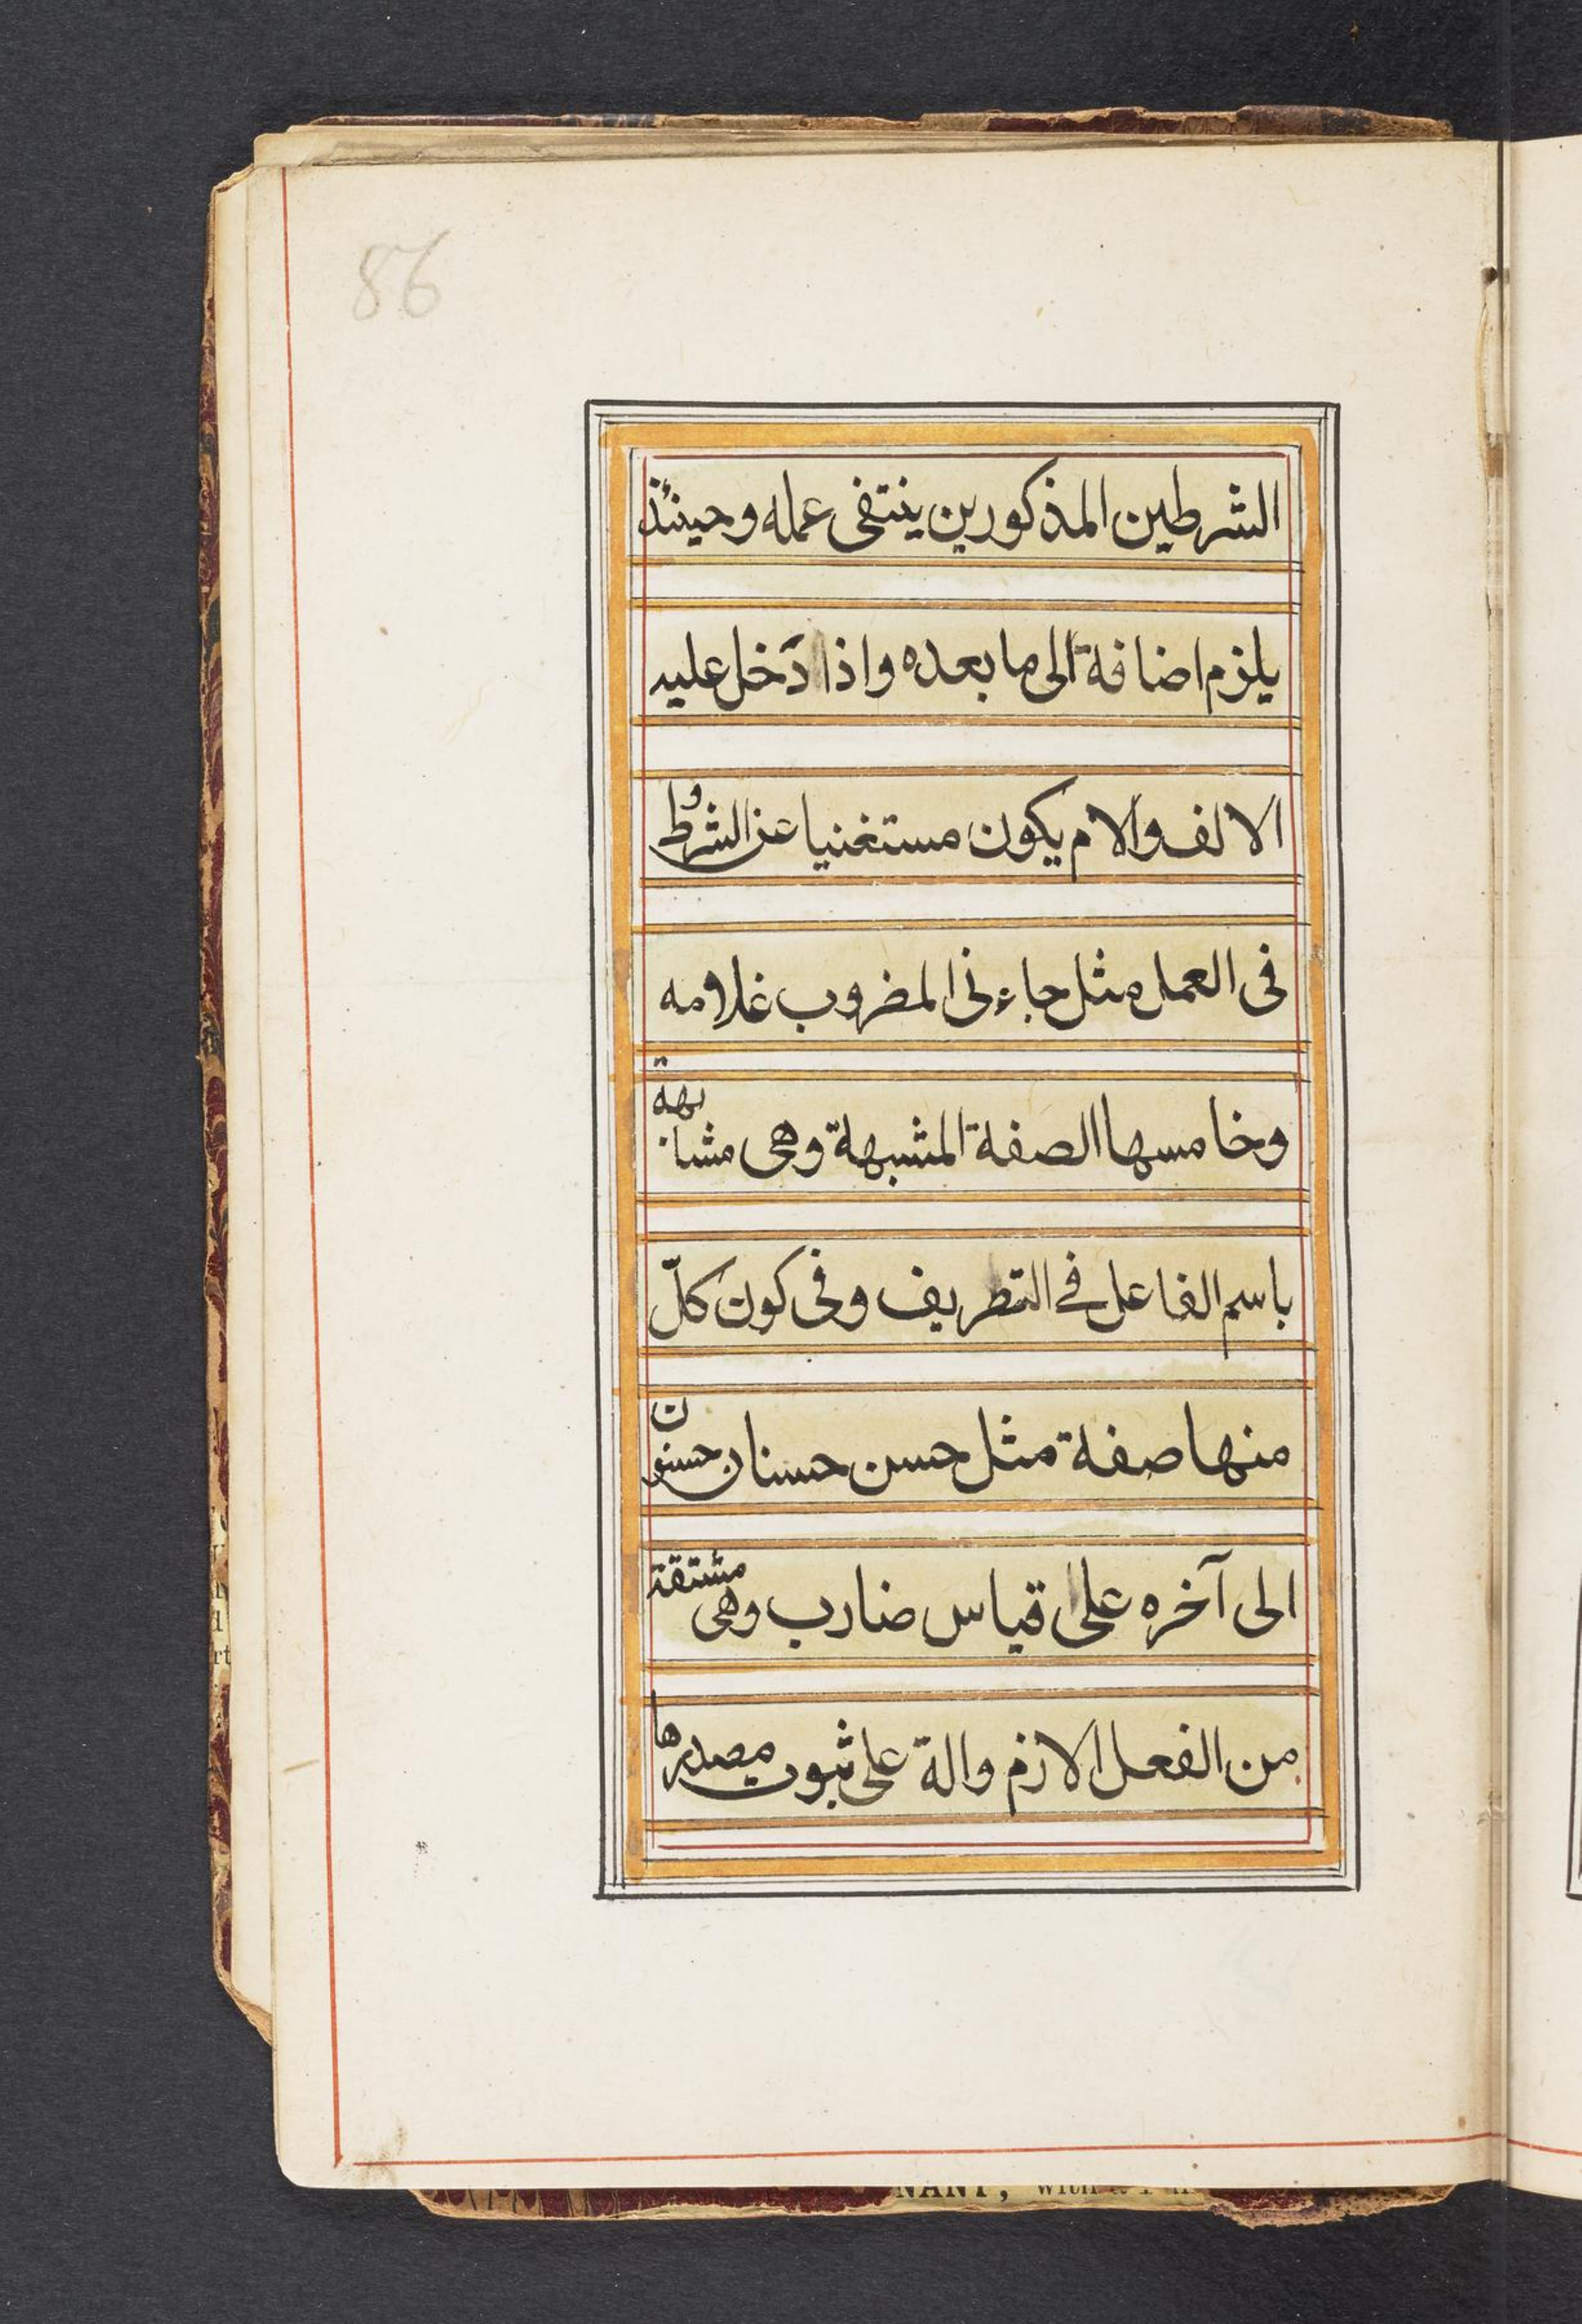 86
الشرطين المذكورين ينتفى عمله وحينئذ
يلزم اضافة الى ما بعده واذا دخل عليه
الالف والام يكون مستغنيا عن الشروط
فى العمل مثل جاءنى المضروب غلامه
وخامسها الصفة المشبهة وهى مشابهة
باسم الفاعل فے التطريف وفى كون كلّ
منها صفة مثل حسن حسنان حسنون
الى آخره على قياس ضارب وهى مشتقة
من الفعل الازم والة على ثبوت مصدرها
NANT, with